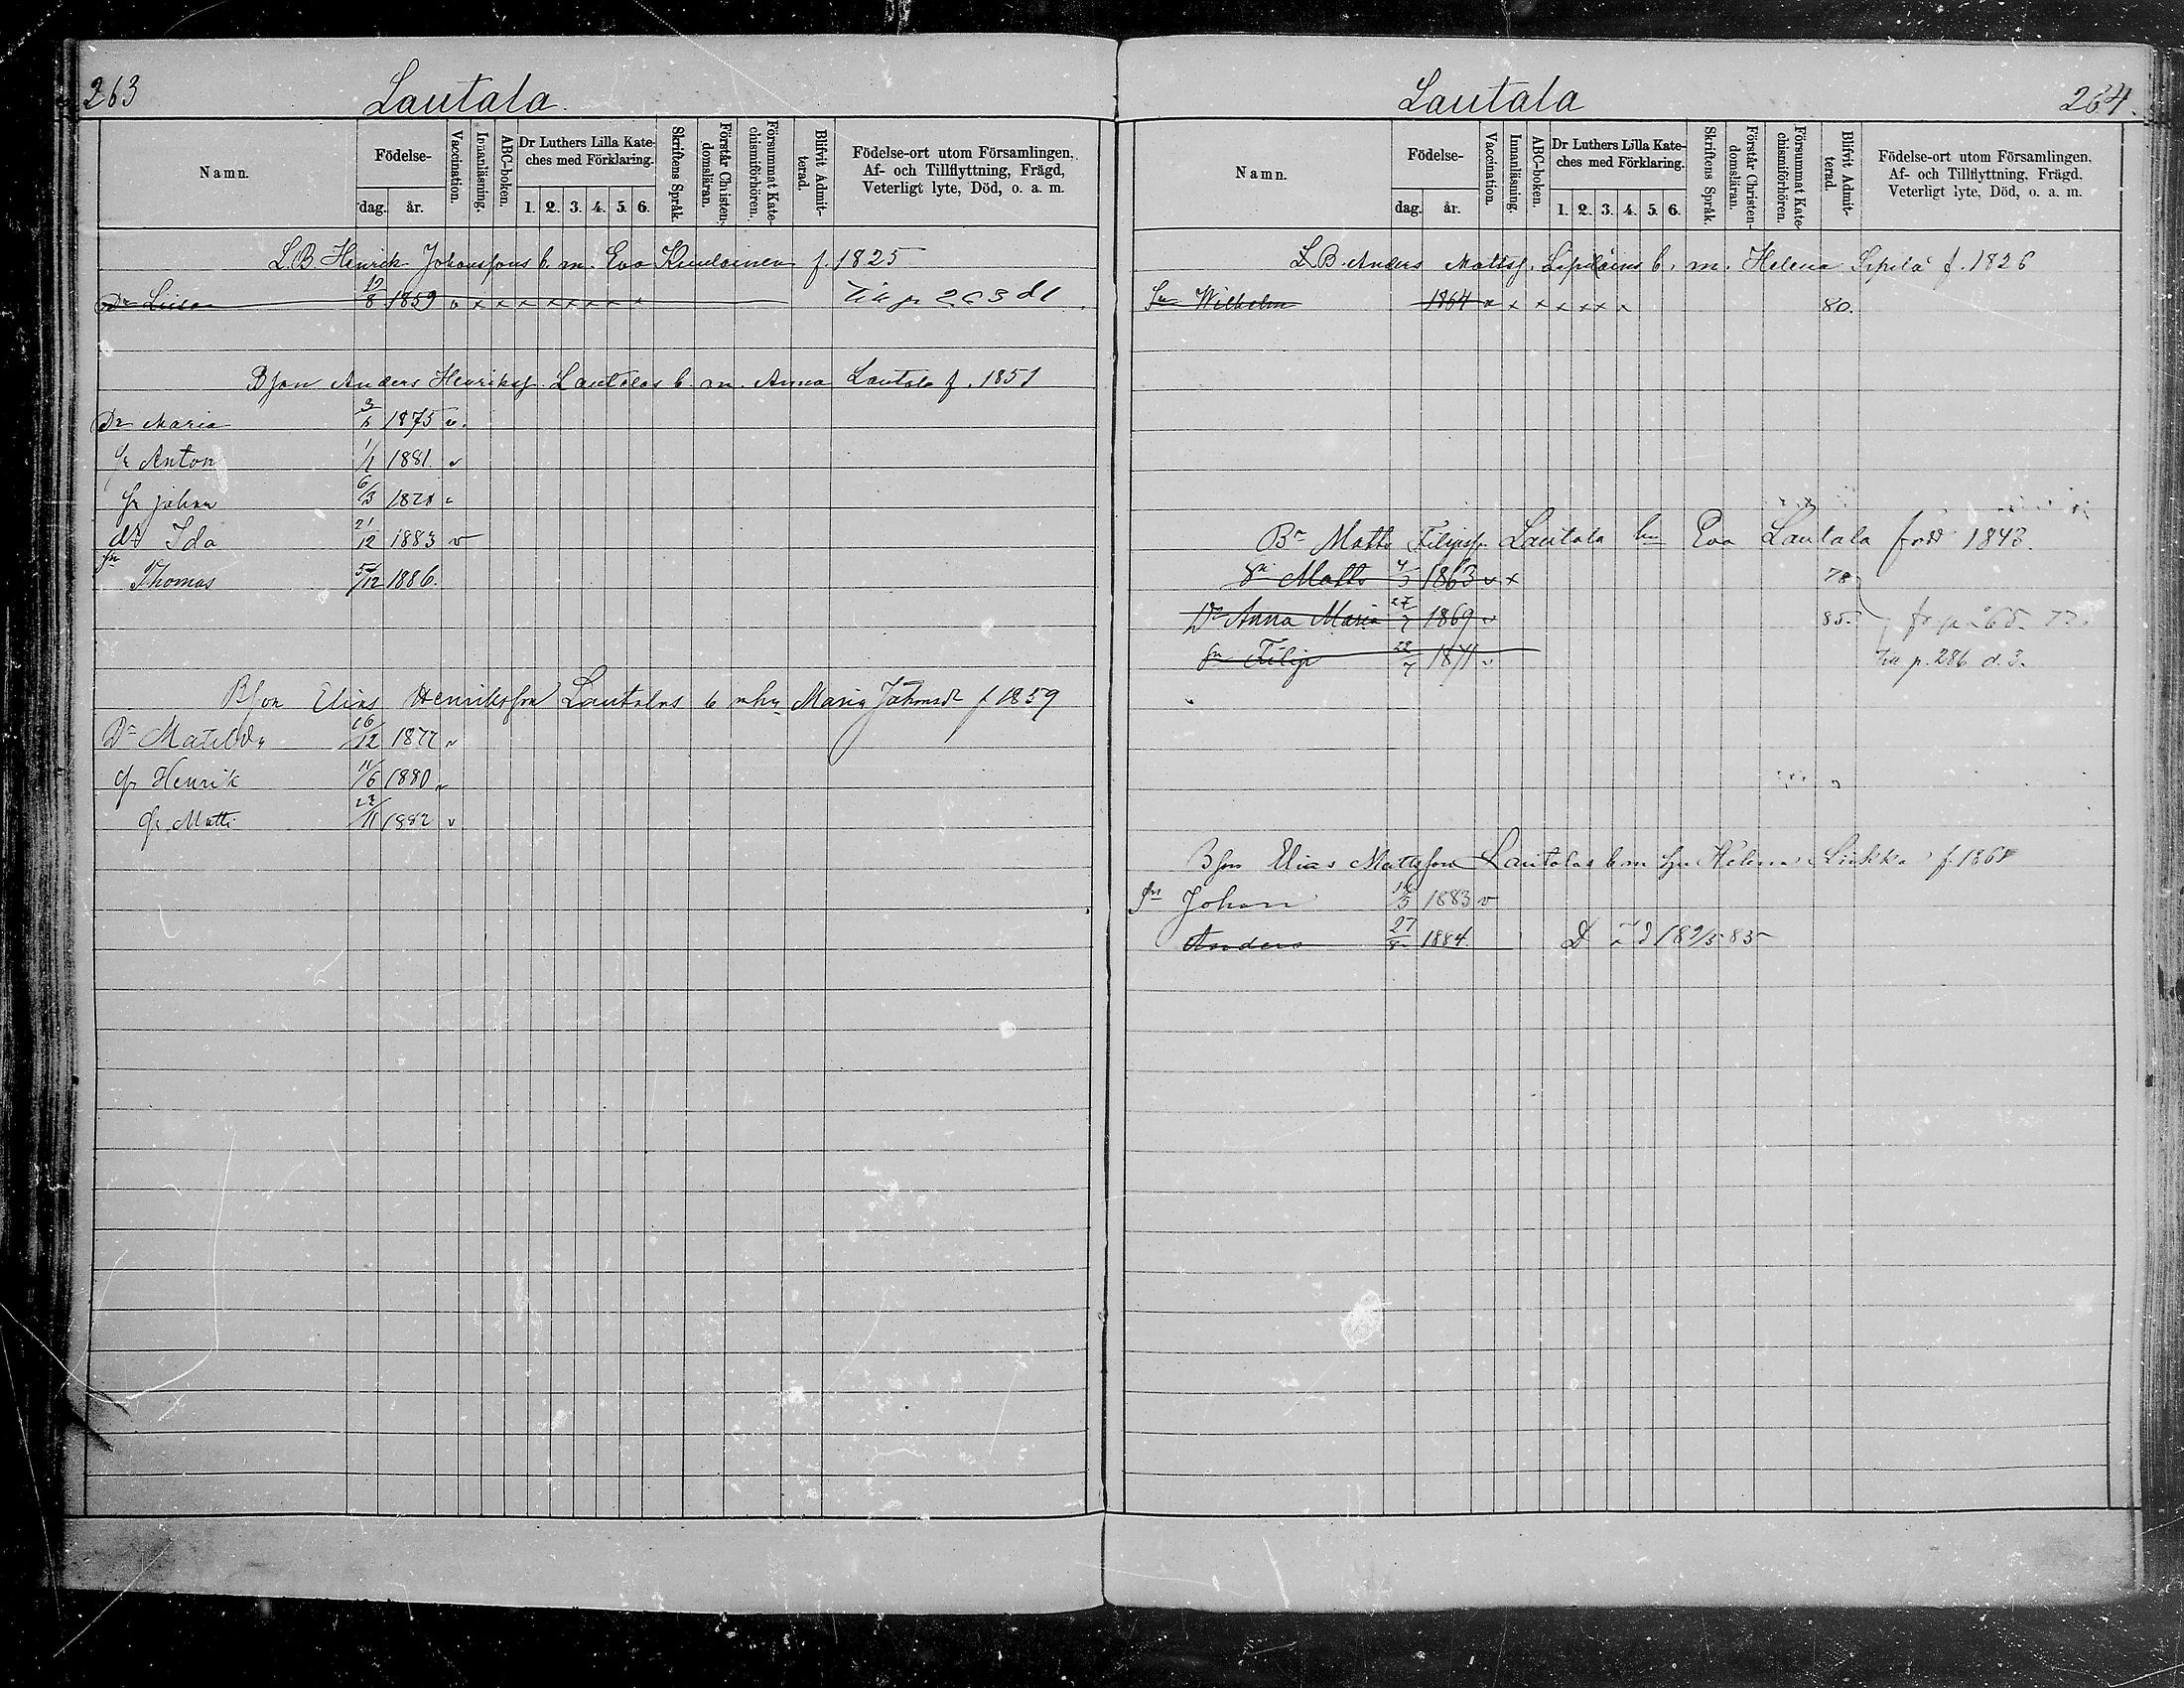 263
Lautala.
Namn.
Födelse-
dag.
år.
Vaccination.
Innanläsning.
ABC-boken.
Dr Luthers Lilla Kateches med Förklaring.
1. 2. 3. 4. 5. 6.
Skriftens Språk.
Förstår Christendomsläran.
Försummat Katechismiförhören.
Blifvit Admitterad.
Födelse-ort utom Församlingen, Af- och Tillflyttning, Frägd, Veterligt lyte, Död, o. a. m.
L.B. Henrik Johanssons b. m. Eva f. 1825
Dr Liisa 8 1859 v x x x x x x x x p 263 d 1
Bson Anders Henrikss. Lautalas b. m. Anna Lautala f. 1851
Dr Maria 1875 v.
Anton 1/1 1881 v
Sn Johan 6/3
dr Ida 21/12 1883 v
sn Thomas 12 1886.
Bson Elias Henriksson Lautalas b Maria f 1859
Dr Matilda 16/12 1877 v
Henrik 11/6 1880 v
Matti 11 1882 v
Lautala
264.
Namn.
Födelse-
dag.
år.
Vaccination.
Innanläsning.
ABC-boken.
Dr Luthers Lilla Kateches med Förklaring.
1. 2. 3. 4. 5. 6.
Skriftens Språk.
Förstår Christendomsläran.
Försummat Katechismiförhören.
Blifvit Admitterad.
Födelse-ort utom Församlingen, Af- och Tillflyttning, Frägd, Veterligt lyte, Död, o. a. m.
L.B. Anders Mattss. b. m. Helena Sipilä f. 1826
Sn Wilhelm 1864 v x x x x x x 80.
Br Matts Filipss. Lautala Eva Lautala född 1843.
Sn Matts 1863 v x 78
Dr Anna Maria 27/7 1869 v 85
Sn Filip 22/7 1871 v p. 286 d. 3.
Bson Elias Mattsson Lautalas b m Helena f 186
Sn Johan 1883 v
Anders 27/8 1884 D